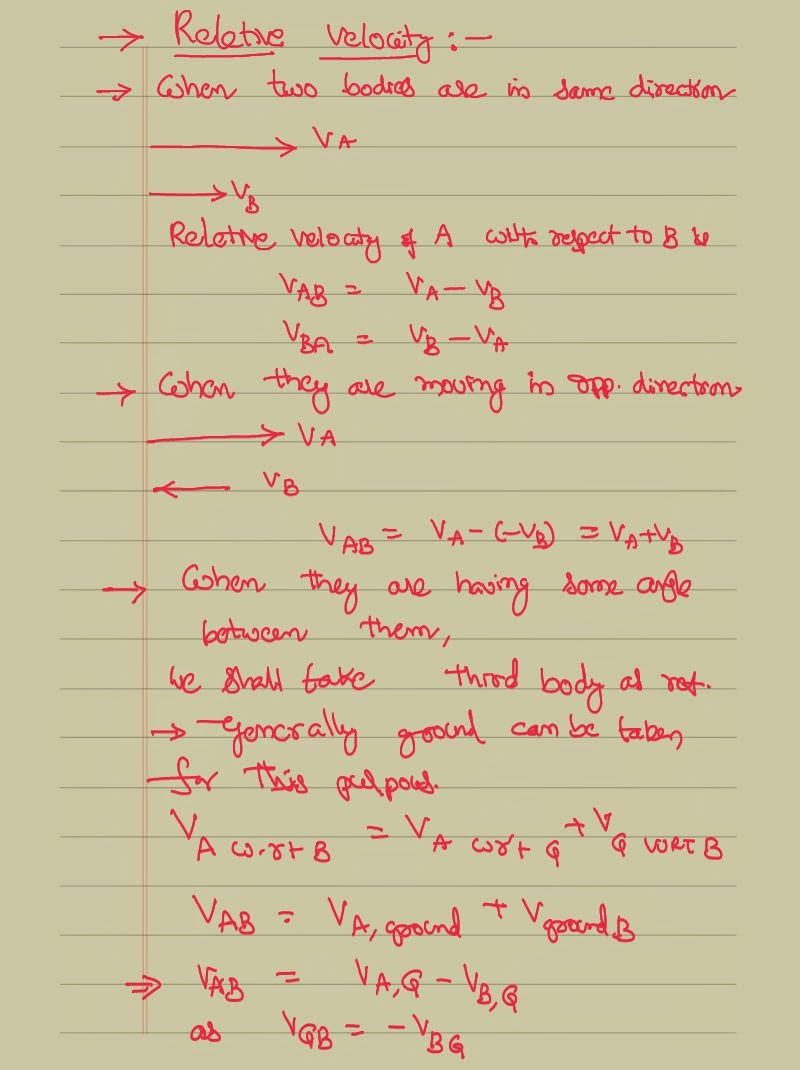 → Relative velocity :-
→ When two bodies are in same direction
V A
V B
Relative velocity of A with respect to B is
V AB = V A - V B
V BA = V B - V A
→ When they are moving in opp. direction
V A
V B
V AB = V A - (-V B) = V A + V B
→ When they are having some angle
between them,
we shall take third body as ref.
→ Generally ground can be taken
for this purpous.
V A w.r.t B = V A wrt G + V G WRT B
V AB = V A, ground + V ground, B
⇒ V AB = V A,G - V B,G
as V GB = - V BG